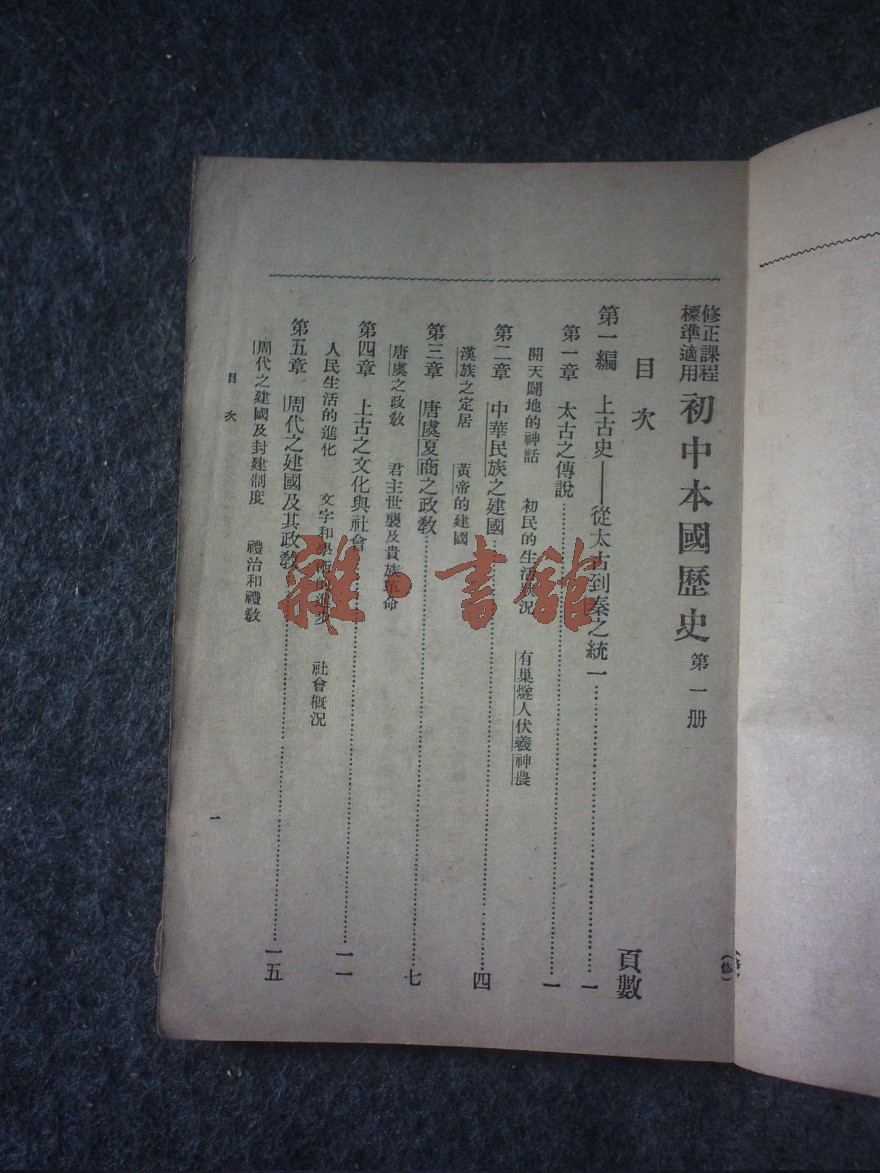 修正課程標準適用 初中本國歷史 第一册
目次
頁數
第一編 上古史——從太古到秦之統一……一
第一章 太古之傳說……一
開天闢地的神話 初民的生活狀況 有巢燧人伏羲神農
第二章 中華民族之建國……四
漢族之定居 黃帝的建國
第三章 唐虞夏商之政教……七
唐虞之政教 君主世襲及貴族革命
第四章 上古之文化與社會……一一
人民生活的進化 文字和學術的進步 社會概況
第五章 周代之建國及其政教……一五
周代之建國及封建制度 禮治和禮教
目次
一
雜·書館